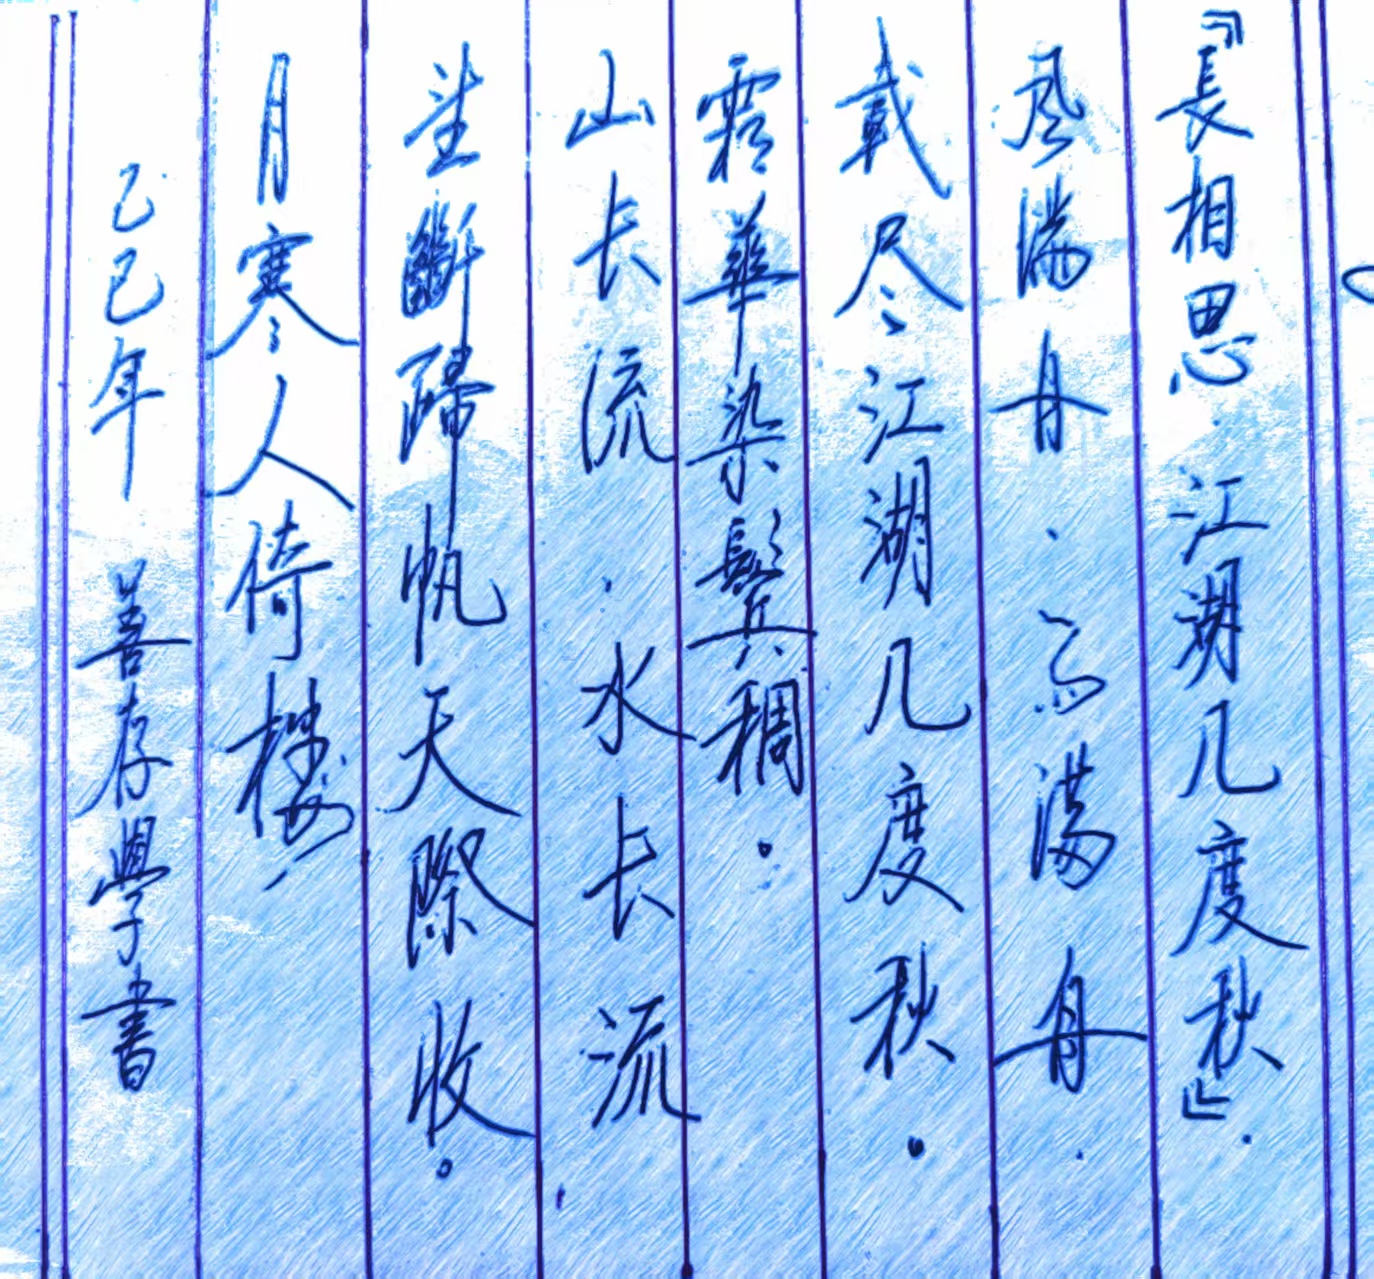 『長相思·江湖几度秋』.
风满舟.满舟.
載尽江湖几度秋.
霜華染鬢稠.
山长流.水长流,
望斷歸帆天際收。
月寒人倚楼.
己巳年 善存學書